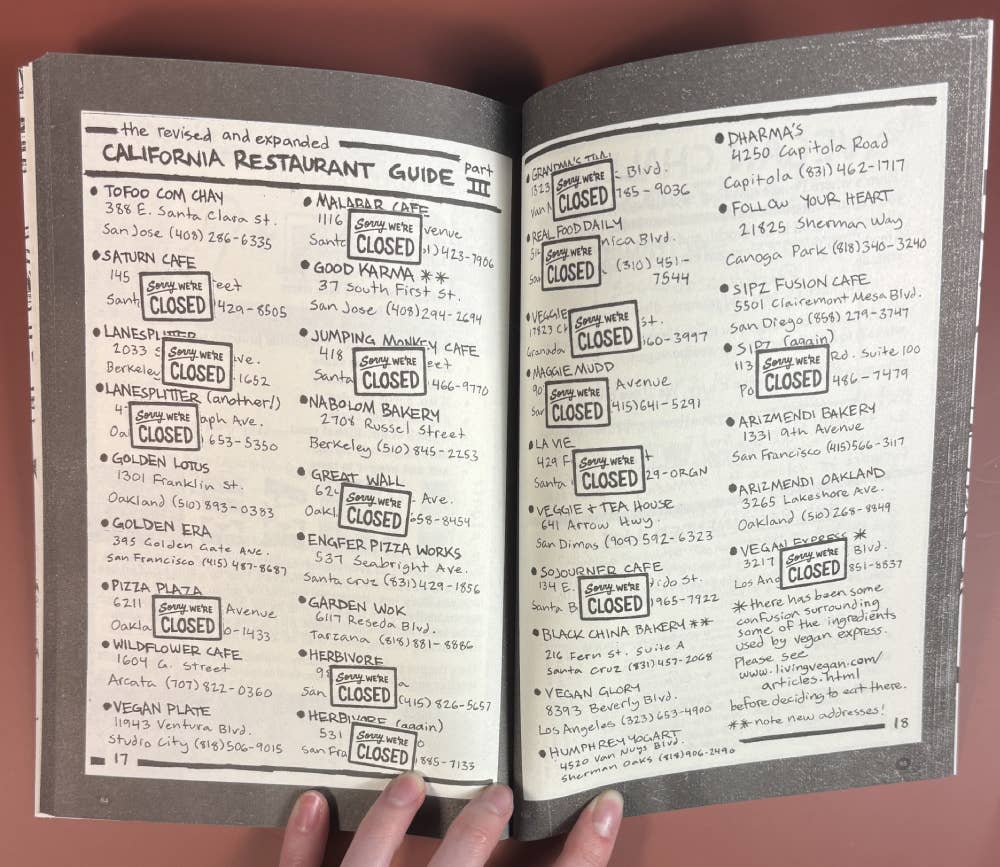 the revised and expanded
CALIFORNIA RESTAURANT GUIDE part III
• TOFOO COM CHAY
388 E. Santa Clara St.
San Jose (408) 286-6335
• SATURN CAFE
145 eet
Sant 429-8505
Sorry WE'RE
CLOSED
• LANESPLITTER
2033 S ve.
Berkeley 1652
Sorry WE'RE
CLOSED
• LANESPLITTER (another!)
aph Ave.
Oa 653-5350
Sorry WE'RE
CLOSED
• GOLDEN LOTUS
1301 Franklin St.
Oakland (510) 893-0383
• GOLDEN ERA
395 Golden Gate Ave.
San Francisco (415) 487-8687
• PIZZA PLAZA
6211 Avenue
Oakla 0-1433
Sorry WE'RE
CLOSED
• WILDFLOWER CAFE
1604 G. Street
Arcata (707) 822-0360
• VEGAN PLATE
11943 Ventura Blvd.
Studio City (818) 506-9015
17
• MALABAR CAFE
1116 venue
Santa 1) 423-7906
Sorry WE'RE
CLOSED
• GOOD KARMA **
37 South First St.
San Jose (408) 294-2694
• JUMPING MONKEY CAFE
418 eet
Santa 466-9770
Sorry WE'RE
CLOSED
• NABOLOM BAKERY
2708 Russel Street
Berkeley (510) 845-2253
• GREAT WALL
624 Ave.
Oakl 658-8454
Sorry WE'RE
CLOSED
• ENGFER PIZZA WORKS
537 Seabright Ave.
Santa Cruz (831) 429-1856
• GARDEN WOK
6117 Reseda Blvd.
Tarzana (818) 881-8886
• HERBIVORE
98
San (415) 826-5657
Sorry WE'RE
CLOSED
• HERBIVORE (again)
531 o
San Fra 885-7133
Sorry WE'RE
CLOSED
64
• GRANDMA'S THAI
1323 Blvd.
Van N 785-9036
Sorry WE'RE
CLOSED
• REAL FOOD DAILY
514 nica Blvd.
Sa (310) 451-
7544
Sorry WE'RE
CLOSED
• VEGGIE
17823 Ch St.
Granada 360-3997
Sorry WE'RE
CLOSED
• MAGGIE MUDD
90 Avenue
San (415) 641-5291
Sorry WE'RE
CLOSED
• LA VIE
429 F t
Santa 29-ORGN
Sorry WE'RE
CLOSED
• VEGGIE + TEA HOUSE
641 Arrow Hwy.
San Dimas (909) 592-6323
• SOJOURNER CAFE
134 E. dido St.
Santa B 965-7922
Sorry WE'RE
CLOSED
• BLACK CHINA BAKERY **
216 Fern St. Suite A
Santa Cruz (831) 457-2068
• VEGAN GLORY
8393 Beverly Blvd.
Los Angeles (323) 653-4900
• HUMPHREY YOGART
4520 Van Nuys Blvd.
Sherman Oaks (818) 906-2490
• DHARMA'S
4250 Capitola Road
Capitola (831) 462-1717
• FOLLOW YOUR HEART
21825 Sherman Way
Canoga Park (818) 340-3240
• SIPZ FUSION CAFE
5501 Clairemont Mesa Blvd.
San Diego (858) 279-3747
• SIPZ (again)
113 Rd. Suite 100
Po 486-7479
Sorry WE'RE
CLOSED
• ARIZMENDI BAKERY
1331 9th Avenue
San Francisco (415) 566-3117
• ARIZMENDI OAKLAND
3265 Lakeshore Ave.
Oakland (510) 268-8849
• VEGAN EXPRESS *
3217 Blvd.
Los Ang 851-8837
Sorry WE'RE
CLOSED
* there has been some
confusion surrounding
some of the ingredients
used by vegan express.
Please see
www.livingvegan.com/
articles.html
before deciding to eat there.
** note new addresses!
18